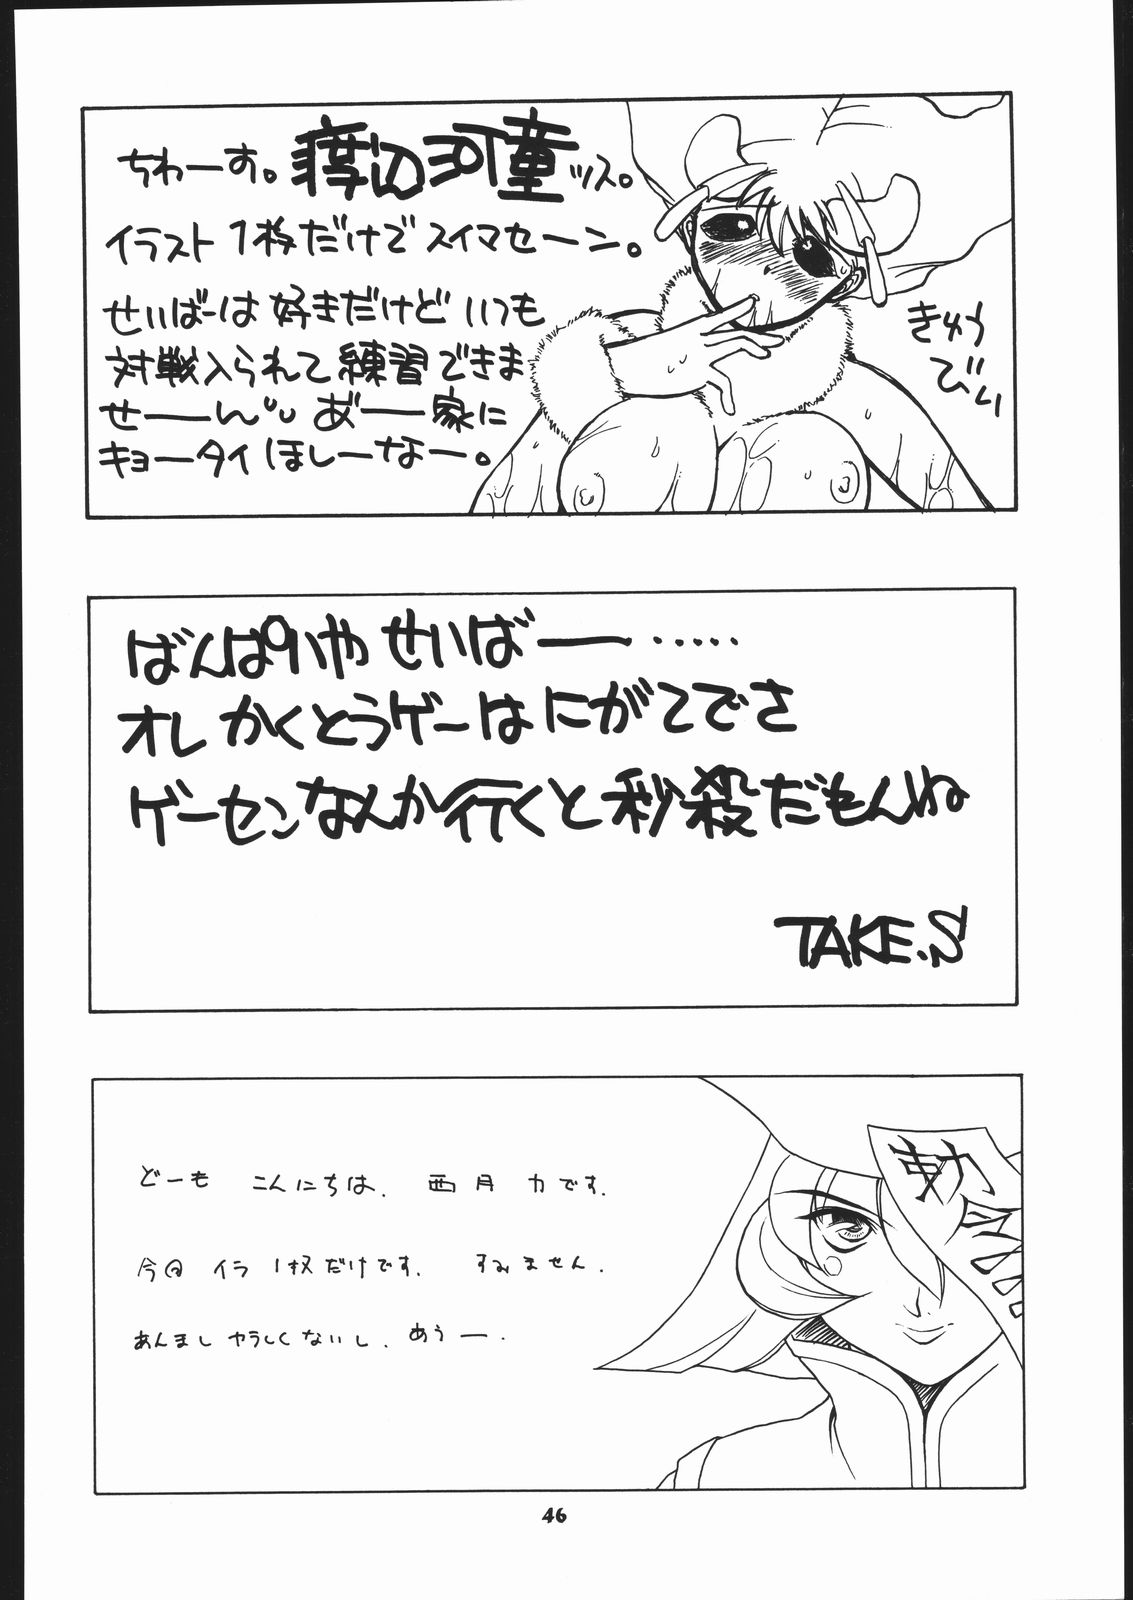 ちわーす。河童ッス。
イラスト1枚だけでスイマセーン。
せいばーは 好きだけど いつも
対戦入られて練習できま
せーーん あ゛ーー家に
キョータイ ほしーなー。
きゅう
びい
ばんぱいや せいばーー ‥‥‥
オレ かくとうゲーは にがてでさ
ゲーセンなんか行くと秒殺だもんね
TAKE.S
どーも こんにちは、 西月 力です。
今回 イラ 1枚だけです。 すみません。
あんまし やらしくないし、 あうー。
勅
46